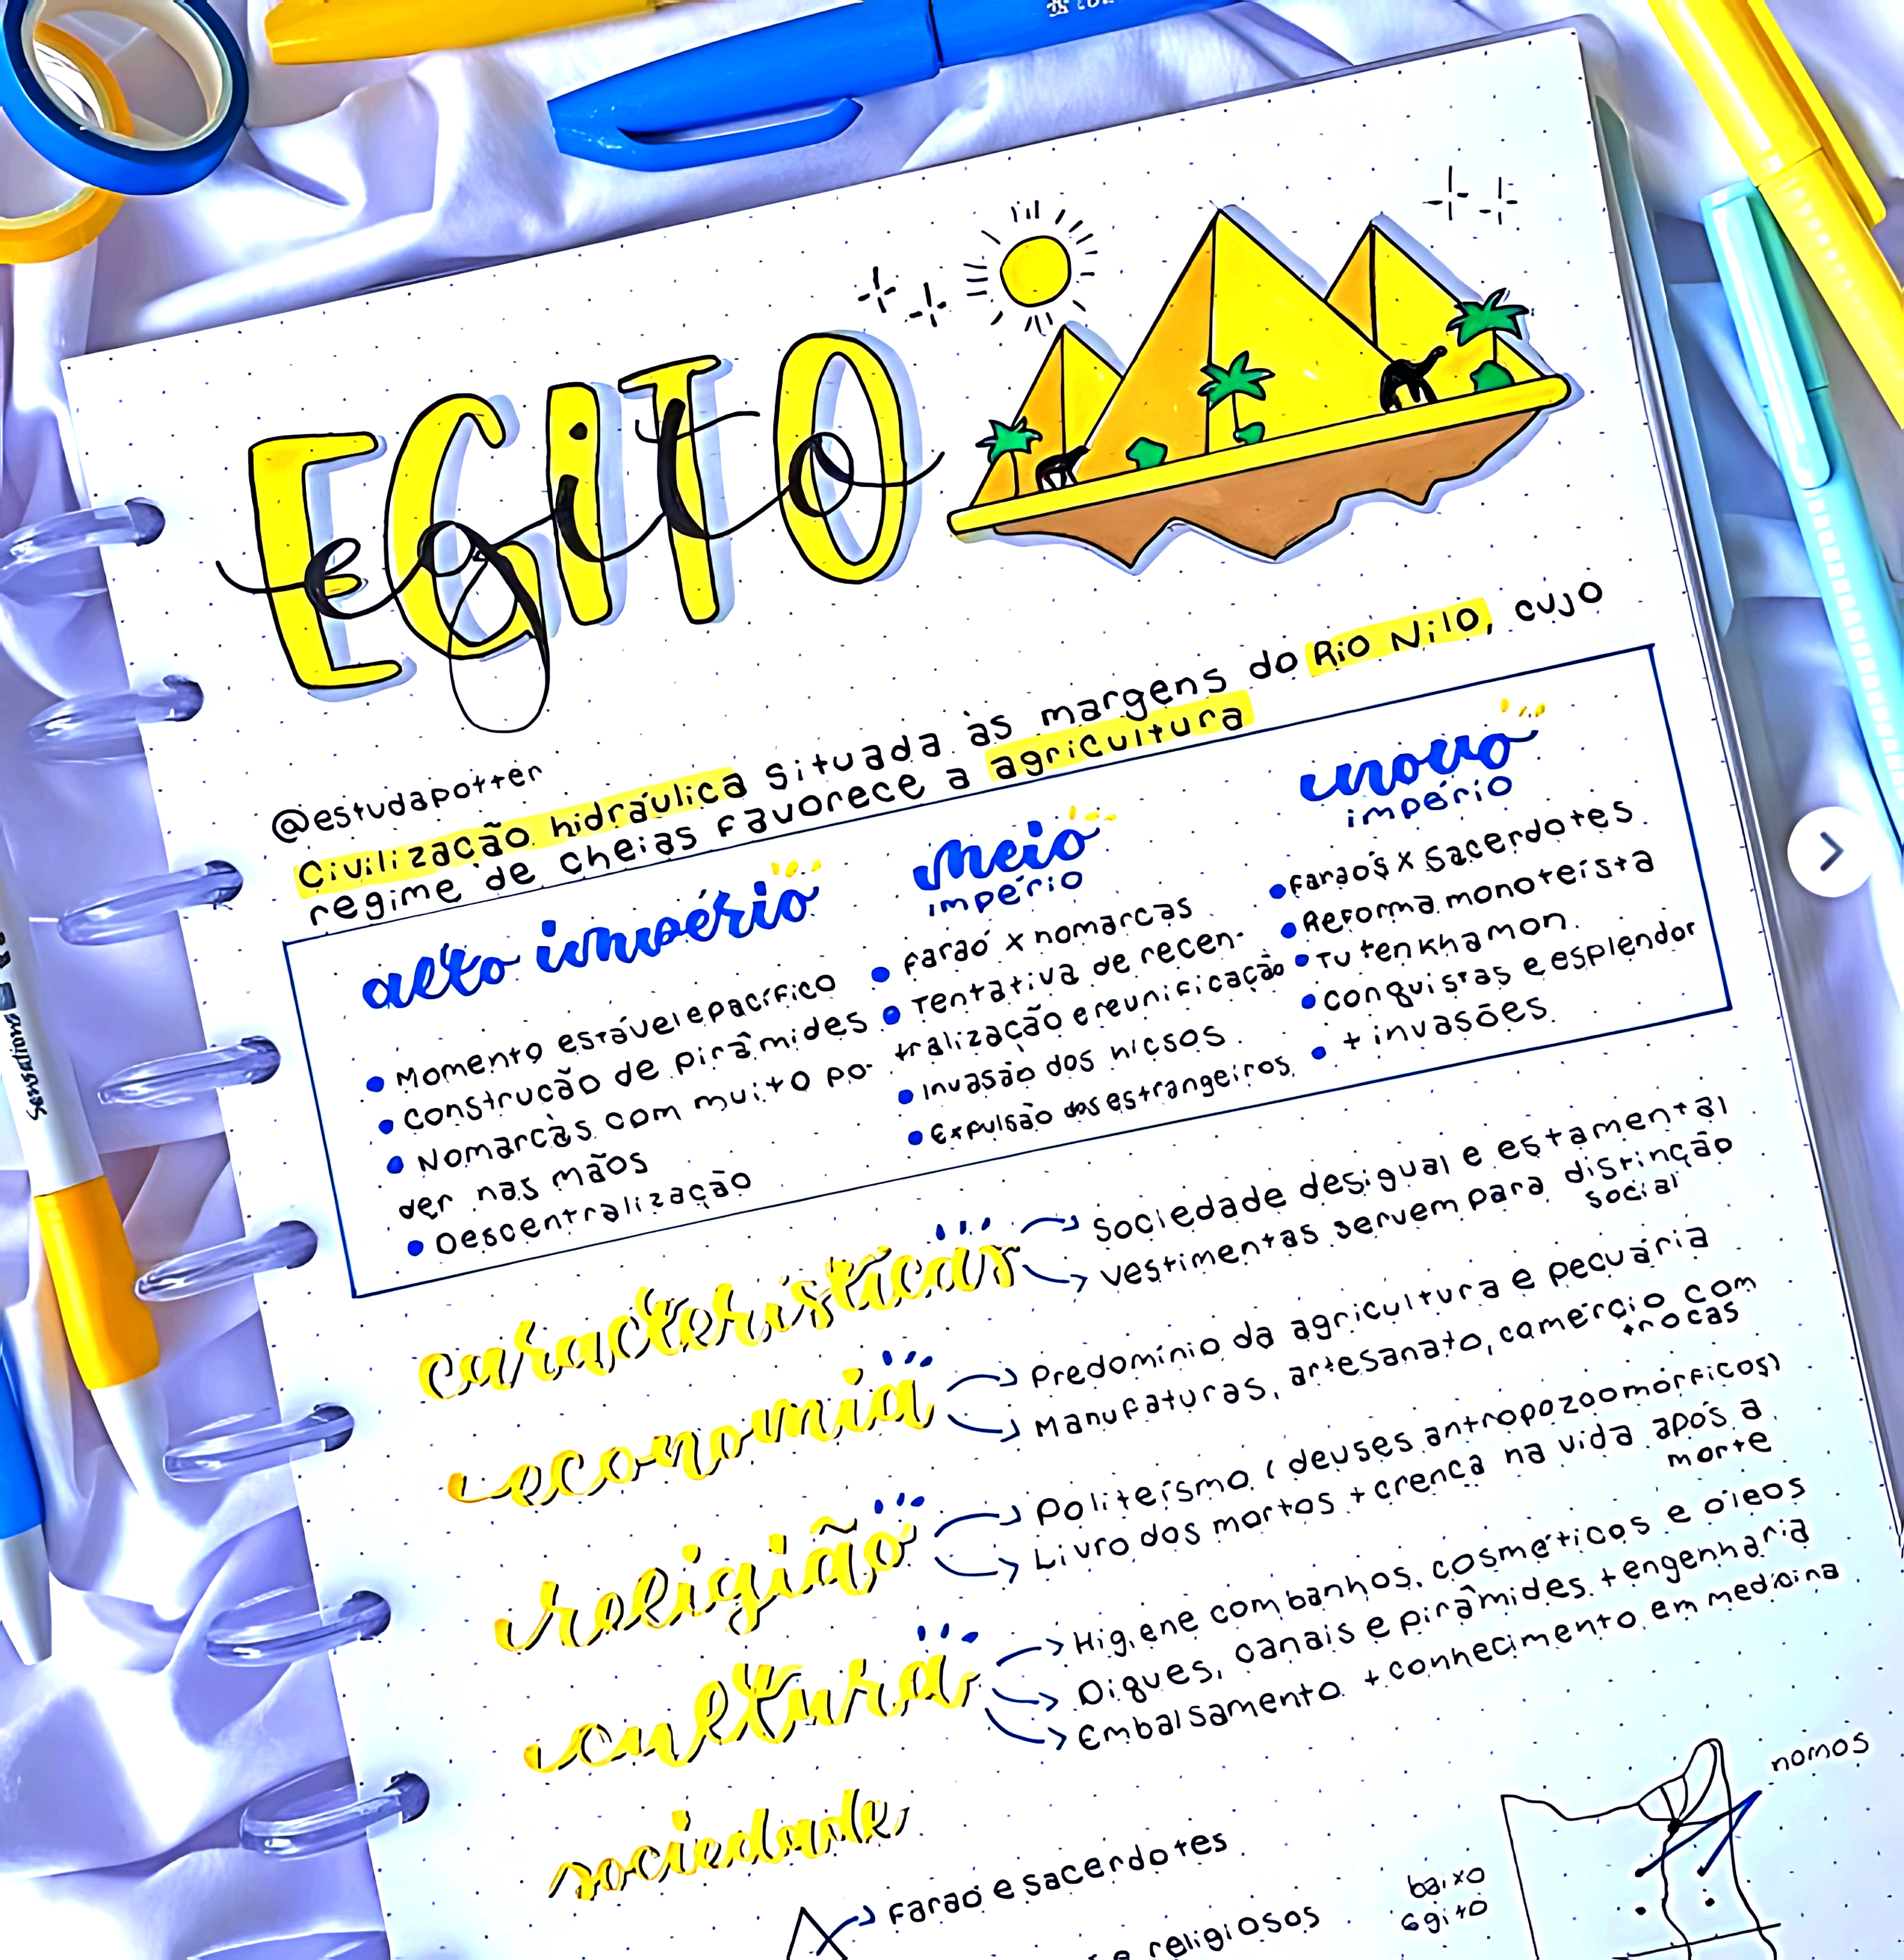 EGITO
egito
@estudapotter
Civilização hidráulica situada às margens do Rio Nilo, cujo
regime de cheias favorece a agricultura
alto império
• Momento estável e pacífico
• Construção de pirâmides
• Nomarcas com muito po-
der nas mãos
• Descentralização
meio
império
• Faraó x nomarcas
• Tentativa de recen-
tralização e reunificação
• Invasão dos hicsos
• Expulsão dos estrangeiros
novo
império
• Faraós x Sacerdotes
• Reforma monoteísta
• Tutenkhamon
• conquistas e esplendor
• + invasões
características
→ Sociedade desigual e estamental
→ vestimentas servem para distinção
social
economia
→ Predomínio da agricultura e pecuária
→ Manufaturas, artesanato, comércio com
trocas
religião
→ Politeísmo (deuses antropozoomórficos)
→ Livro dos mortos + crença na vida após a
morte
cultura
→ Higiene com banhos, cosméticos e óleos
→ Diques, canais e pirâmides + engenharia
→ Embalsamento + conhecimento em medicina
sociedade
→ Faraó e sacerdotes
e religiosos
nomos
baixo
egito